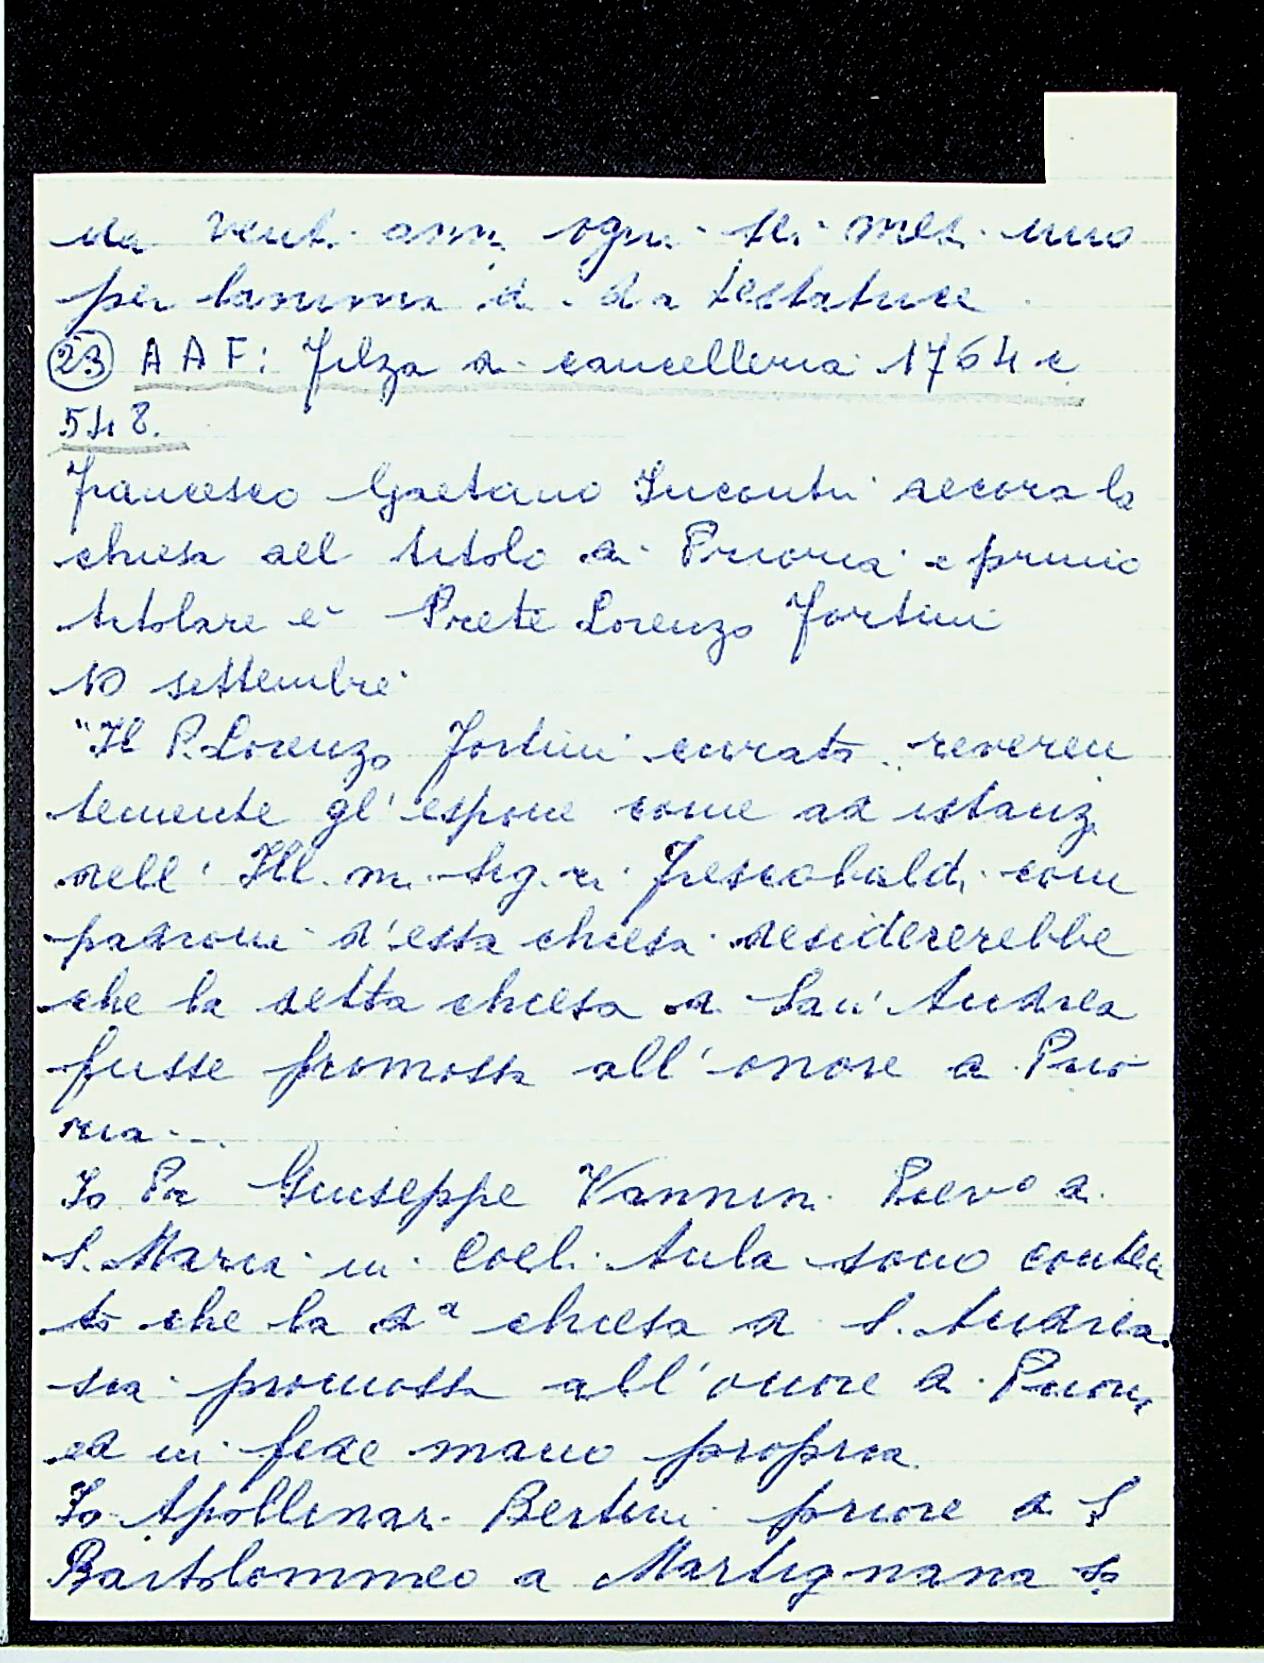 da vent. anni ogni sei mesi uno
per l'anima di d.a testatrice
(23) A A F: Filza di cancelleria 1764 c
548.
Francesco Gaetano Incontri decora la
chiesa del titolo di Prioria e primo
titolare è Prete Lorenzo Fortini
10 settembre
"Il P. Lorenzo Fortini curato reveren
temente gl'espone come ad istanz
dell' Ill. m. Sig. ri Frescobaldi com
padroni d'essa chiesa desidererebbe
che la detta chiesa di San' Andrea
fusse promossa all'onore di Prio
ria...
Io Pr Giuseppe Vannini Pievo di
S. Maria in Coeli Aula sono conten
to che la d.a chiesa di S. Andrea
sia promossa all'onore di Priori
ed in fede mano propria
Io Apollinar. Bertini priore di S
Bartolommeo a Martignana so